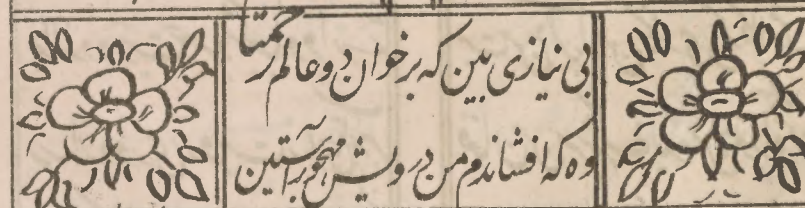 بی نیازی بین که بر خوان دو عالم رحمتا
وه که افشاندم من درویش مهجور آستین